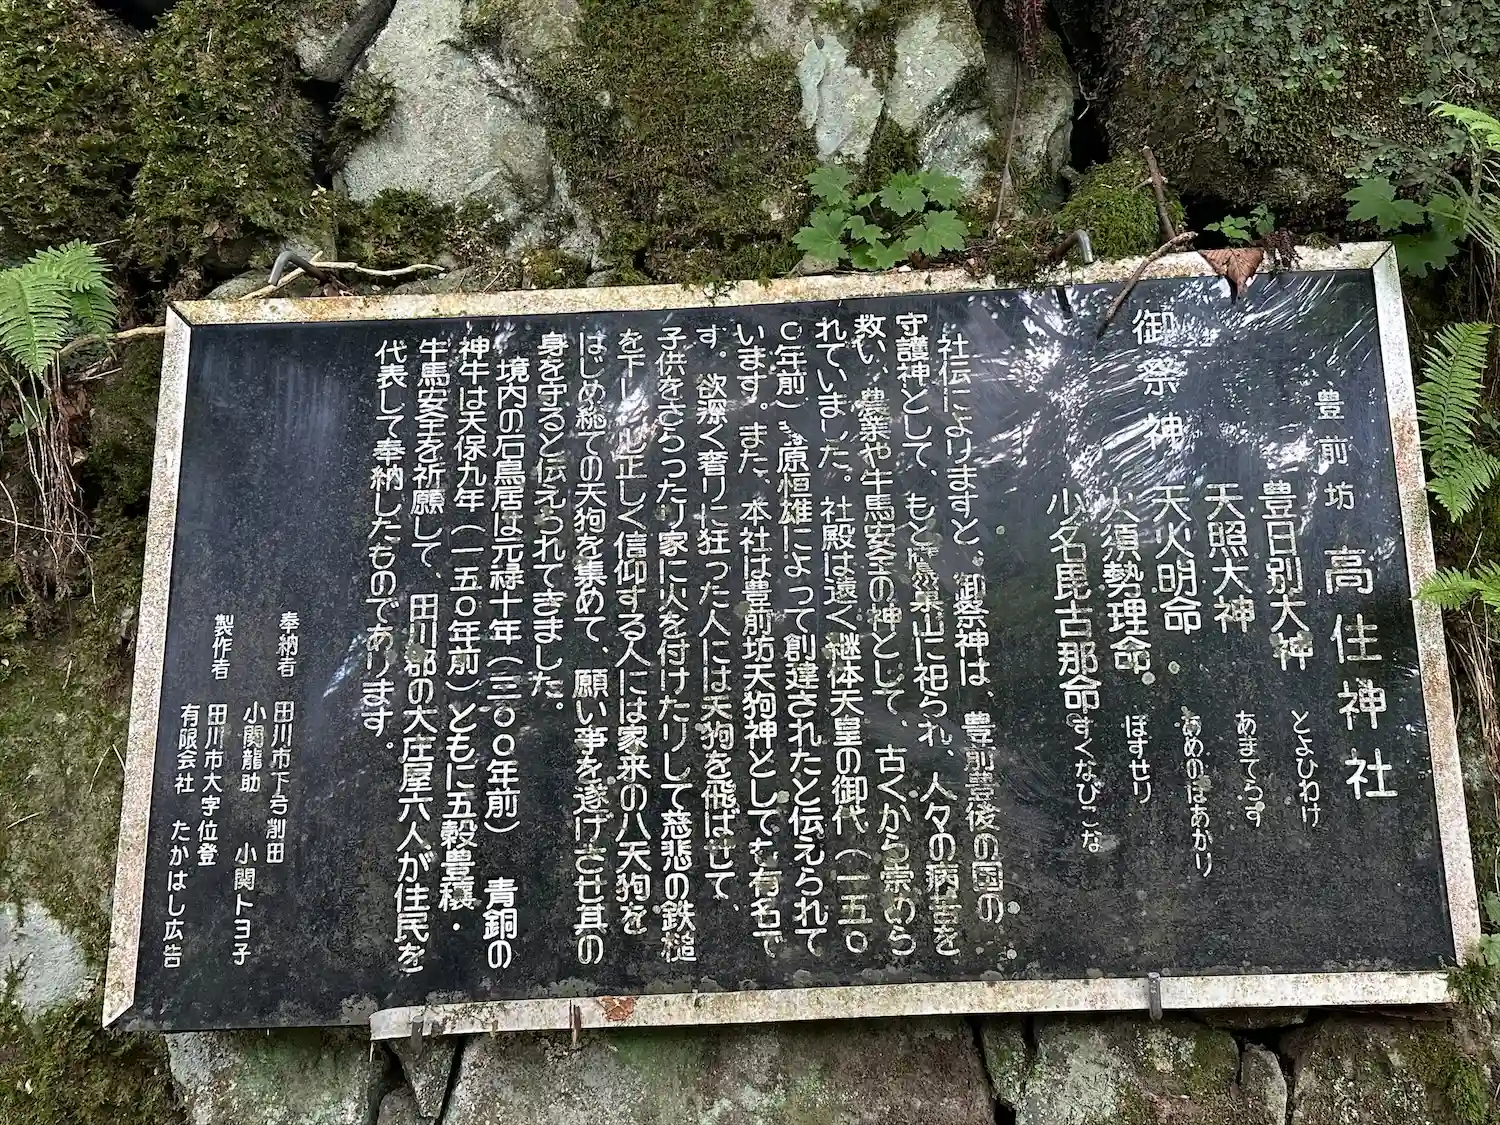 豊前坊 高住神社
御祭神
豊日別大神 とよひわけ
天照大神 あまてらす
天火明命 あめのほあかり
火須勢理命 ほすせり
小名毘古那命 すくなびこな
社伝によりますと、御祭神は、豊前豊後の国の
守護神として、もと鷹巣山に祀られ、人々の病苦を
救い、農業や牛馬安全の神として、古くから崇めら
れていました。社殿は遠く継体天皇の御代(一五〇
〇年前) 原恒雄によって創建されたと伝えられて
います。また、本社は豊前坊天狗神としても有名で
す。欲深く奢りに狂った人には天狗を飛ばせて、
子供をさらったり家に火を付けたりして慈悲の鉄槌
を下し、正しく信仰する人には家来の八天狗を
はじめ総ての天狗を集めて、願い事を遂げさせ其の
身を守ると伝えられてきました。
境内の石鳥居は元禄十年(三〇〇年前) 青銅の
神牛は天保九年(一五〇年前)ともに五穀豊穣・
牛馬安全を祈願して、田川郡の大庄屋六人が住民を
代表して奉納したものであります。
奉納者 田川市下弓削田
小関龍助 小関トヨ子
製作者 田川市大字位登
有限会社 たかはし広告